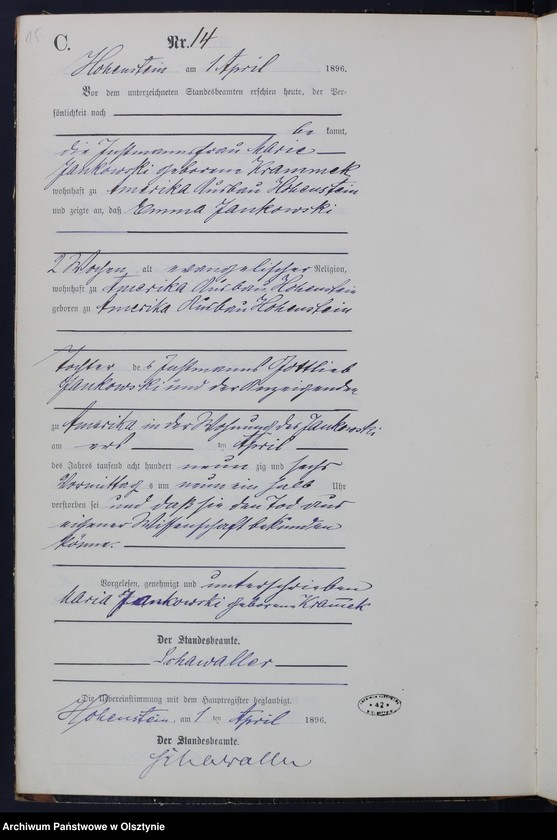 15
C.
Nr. 14
Hohenstein am 1 April 1896.
Vor dem unterzeichneten Standesbeamten erschien heute, der Per-
sönlichkeit nach
be kannt,
die Instmannsfrau Marie
Jankowski geborene Krammek
wohnhaft zu Amerika Ausbau Hohenstein
und zeigte an, daß Emma Jankowski
2 Wochen alt evangelischer Religion,
wohnhaft zu Amerika Ausbau Hohenstein
geboren zu Amerika Ausbau Hohenstein
Tochter des Instmanns Gottlieb
Jankowski und der Anzeigenden
zu Amerika in der Wohnung des Jankowski
am erst ten April
des Jahres tausend acht hundert neun zig und sechs
Vormittags um neun ein halb Uhr
verstorben sei und daß sie den Tod aus
eigener Wissenschaft bekunden
könne.
Vorgelesen, genehmigt und unterschrieben
Maria Jankowski geborene Kramek
Der Standesbeamte.
Schawaller
Die Übereinstimmung mit dem Hauptregister beglaubigt.
Hohenstein, am 1 ten April 1896.
Der Standesbeamte.
Schawaller
42
Archiwum Państwowe w Olsztynie